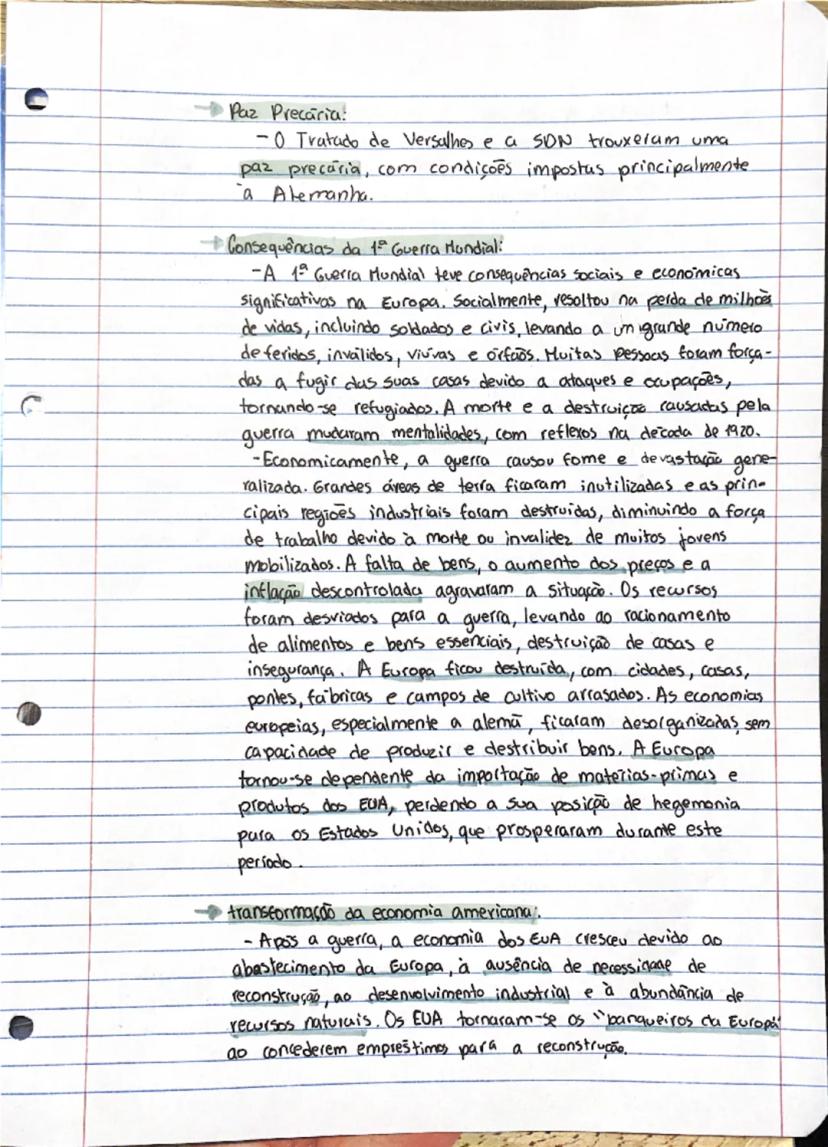 → Paz Precária:
- O Tratado de Versalhes e a SDN trouxeram uma
paz precária, com condições impostas principalmente
à Alemanha.
→ Consequências da 1ª Guerra Mundial:
- A 1ª Guerra Mundial teve consequências sociais e económicas
significativas na Europa. Socialmente, resoltou na perda de milhões
de vidas, incluindo soldados e civis, levando a um grande número
de feridos, inválidos, viúvas e órfãos. Muitas pessoas foram força-
das a fugir das suas casas devido a ataques e ocupações,
tornando-se refugiados. A morte e a destruição causadas pela
guerra mudaram mentalidades, com reflexos na década de 1920.
- Economicamente, a guerra causou fome e devastação gene-
ralizada. Grandes áreas de terra ficaram inutilizadas e as prin-
cipais regiões industriais foram destruídas, diminuindo a força
de trabalho devido à morte ou invalidez de muitos jovens
mobilizados. A falta de bens, o aumento dos preços e a
inflação descontrolada agravaram a situação. Os recursos
foram desviados para a guerra, levando ao racionamento
de alimentos e bens essenciais, destruição de casas e
insegurança. A Europa ficou destruída, com cidades, casas,
pontes, fábricas e campos de cultivo arrasados. As economias
europeias, especialmente a alemã, ficaram desorganizadas, sem
capacidade de produzir e destribuir bens. A Europa
tornou-se dependente da importação de matérias-primas e
produtos dos EUA, perdendo a sua posição de hegemonia
para os Estados Unidos, que prosperaram durante este
período.
→ transformação da economia americana:
- Após a guerra, a economia dos EUA cresceu devido ao
abastecimento da Europa, à ausência de necessidade de
reconstrução, ao desenvolvimento industrial e à abundância de
recursos naturais. Os EUA tornaram-se os "banqueiros da Europa"
ao concederem empréstimos para a reconstrução.